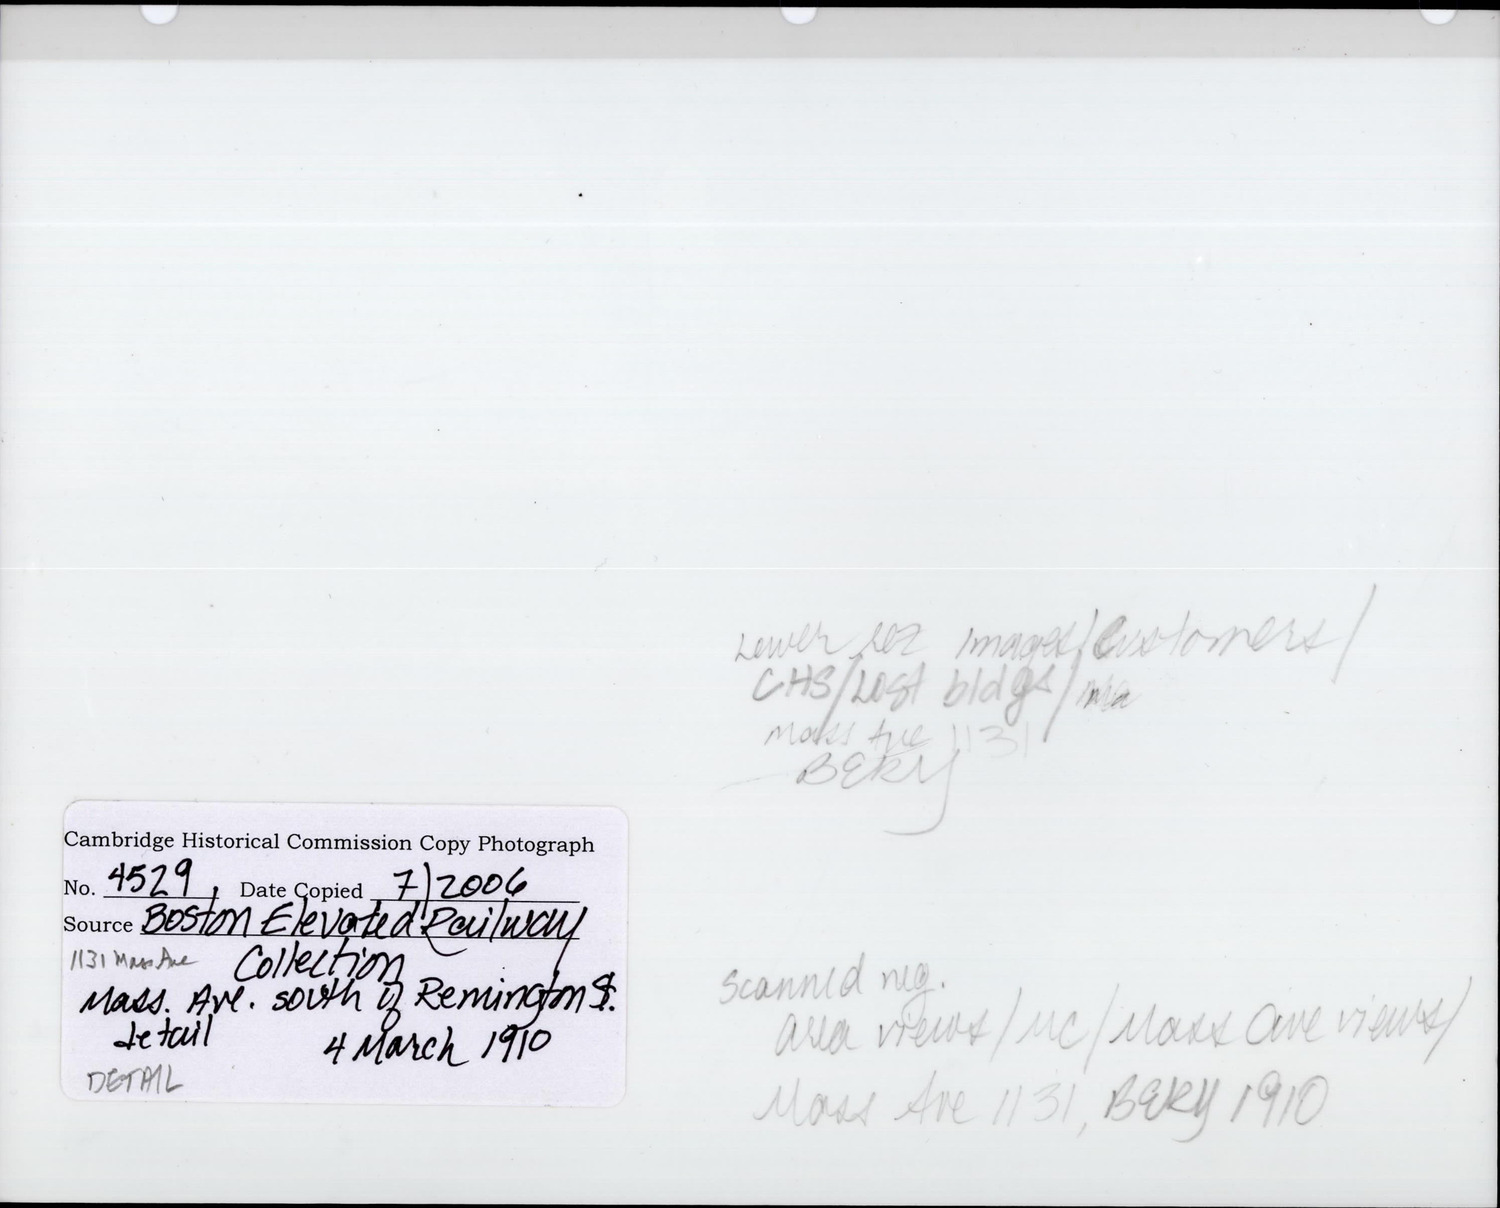 Lower rez images/Customers/
CHS/Lost bldgs/Ma
Mass Ave 1131
BERY
Cambridge Historical Commission Copy Photograph
No. 4529, Date Copied 7/2006
Source Boston Elevated Railway
1131 Mass Ave Collection
Mass. Ave. south of Remington St.
detail 4 March 1910
DETAIL
Scanned neg.
area views/MC/Mass Ave views/
Mass Ave 1131, BERY 1910